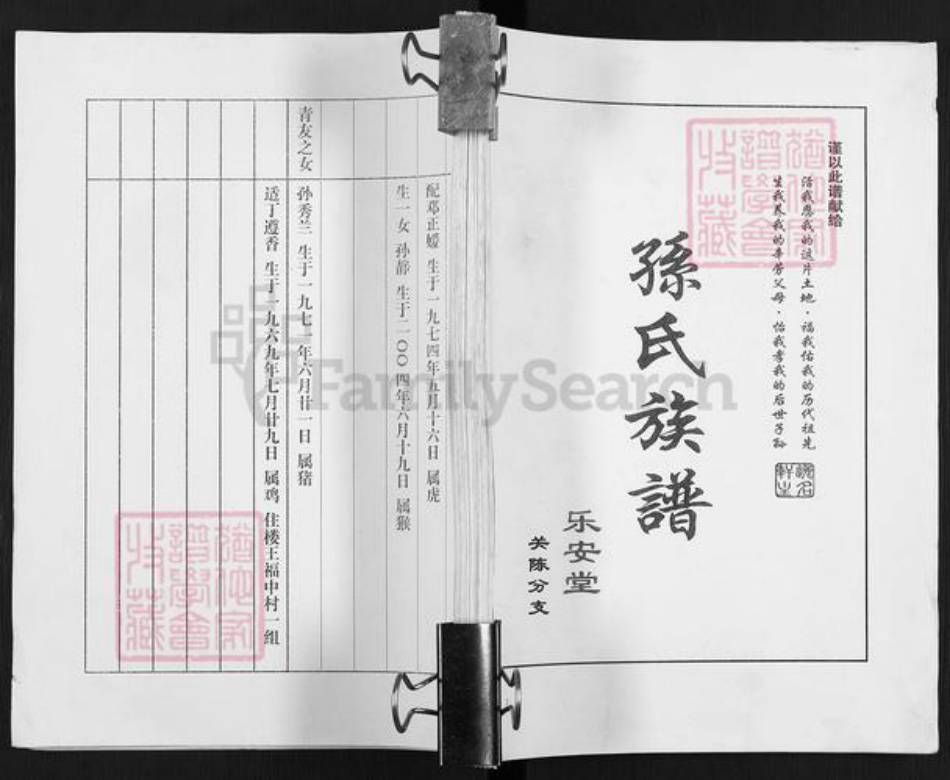 谨以此谱献给
活我恩我的这片土地·福我佑我的历代祖先
生我养我的辛劳父母·怡我孝我的后世子孙
孫氏族譜
乐安堂
关陈分支
配邓正嫒 生于一九七四年五月十六日 属虎
生一女 孙静 生于二〇〇四年六月十九日 属猴
青友之女
孙秀兰 生于一九七一年六月廿一日 属猪
适丁遵香 生于一九六九年七月廿九日 属鸡 住楼王福中村一组
FamilySearch